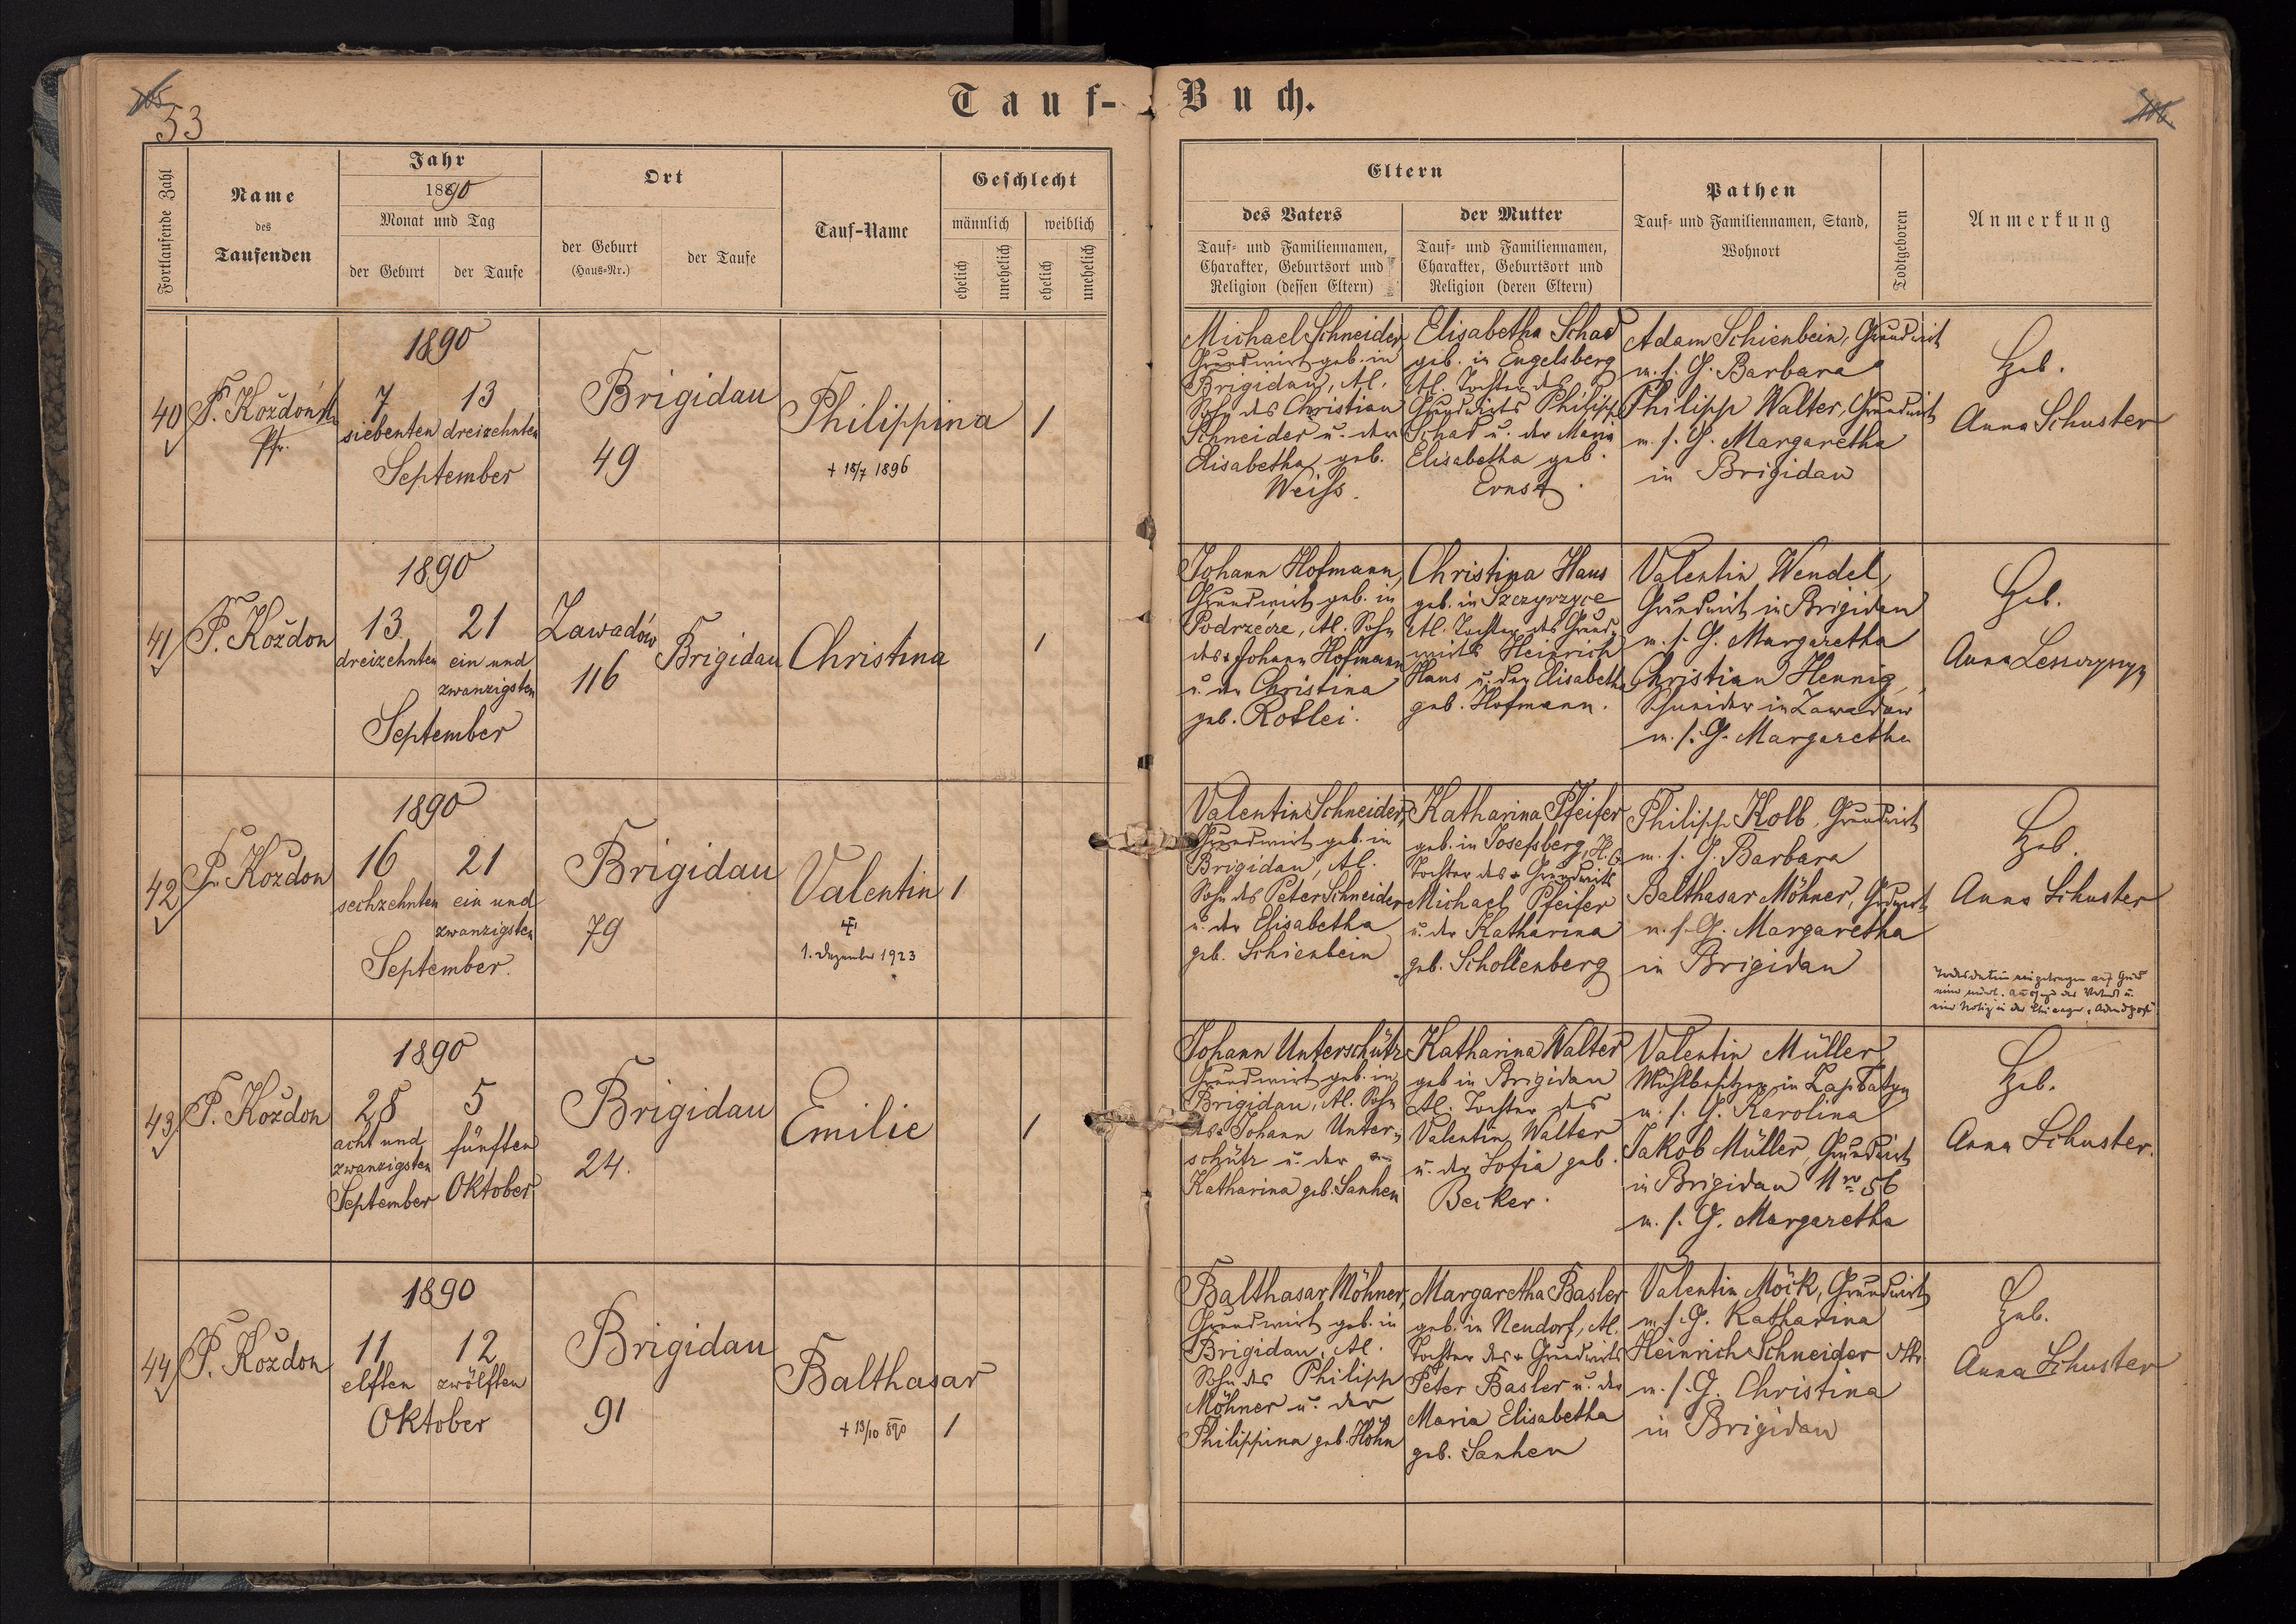 105
53
Tauf-Buch.
106.
Fortlaufende Zahl
Name
des
Taufenden
Jahr
1890
Monat und Tag
der Geburt
der Taufe
Ort
der Geburt
(Haus-Nr.)
der Taufe
Tauf-Name
Geschlecht
männlich
weiblich
ehelich
unehelich
ehelich
unehelich
Eltern
des Vaters
Tauf- und Familiennamen,
Charakter, Geburtsort und
Religion (dessen Eltern)
der Mutter
Tauf- und Familiennamen,
Charakter, Geburtsort und
Religion (deren Eltern)
Pathen
Tauf- und Familiennamen, Stand,
Wohnort
Todtgeboren
Anmerkung
40
P. Koždoń
Pfr.
1890
7
siebenten
13
dreizehnten
September
Brigidau
49
Philippina
+ 18/7 1896
1
Michael Schneider,
Grundwirt geb. in
Brigidau, Al.
Sohn des Christian
Schneider u. der
Elisabetha geb.
Weiss.
Elisabetha Schad
geb. in Engelsberg
Al. Tochter des
Grundwirts Philipp
Schad u. der Maria
Elisabetha geb.
Ernst.
Adam Schienbein, Grundwirt
m. s. G. Barbara
Philipp Walter, Grundwirt
m. s. G. Margaretha
in Brigidau
Heb.
Anna Schuster
41
P. Koždon
1890
13
dreizehnten
21
ein und
zwanzigsten
September
Zawadów
116
Brigidau
Christina
1
Johann Hofmann,
Grundwirt geb. in
Podrzecze, Al. Sohn
des + Johann Hofmann
u. der Christina
geb. Rotlei.
Christina Haus
geb. in Szczyrzyce
Al. Tochter des Grund-
wirts Heinrich
Haus u. der Elisabetha
geb. Hofmann.
Valentin Wendel,
Grundwirt in Brigidau
m. s. G. Margaretha
Christian Hennig,
Schneider in Zawadow
m. s. G. Margaretha
Heb.
Anna
42
P. Koždon
1890
16
sechzehnten
21
ein und
zwanzigsten
September.
Brigidau
79
Valentin
1. Dezember 1923
1
Valentin Schneider,
Grundwirt geb. in
Brigidau, Al.
Sohn des Peter Schneider
u. der Elisabetha
geb. Schienbein
Katharina Pfeifer
geb. in Josefsberg, H.C.
Tochter des + Grundwirts
Michael Pfeifer
u. der Katharina
geb. Schollenberg
Philipp Kolb, Grundwirt
m. s. G. Barbara
Balthasar Möhner, Grdwirt
m. s. G. Margaretha
in Brigidau
Heb.
Anna Schuster
Todesdatum eingetragen auf Grund
43
P. Koždon
1890
28
acht und
zwanzigsten
September
5
fünften
Oktober
Brigidau
24.
Emilie
1
Johann Unterschütz
Grundwirt geb. in
Brigidau, Al. Sohn
des + Johann Unter-
schütz u. der
Katharina geb. Sanhen
Katharina Walter
geb in Brigidau
Al. Tochter des
Valentin Walter
u. der Sofia geb.
Becker.
Valentin Müller,
Mühlbesitzer in
m. s. G. Karolina
Jakob Müller, Grundwirt
in Brigidau Nro 56
m. s. G. Margaretha
Heb.
Anna Schuster.
44
P. Koždon
1890
11
elften
12
zwölften
Oktober
Brigidau
91
Balthasar
+ 13/10 890
1
Balthasar Möhner,
Grundwirt geb. in
Brigidau, Al.
Sohn des Philipp
Möhner u. der
Philippina geb. Höhn
Margaretha Basler
geb. in Neudorf, Al.
Tochter des + Grundwirts
Peter Basler u. der
Maria Elisabetha
geb. Sanhen
Valentin Möck, Grundwirt
m. s. G. Katharina
Heinrich Schneider
m. s. G. Christina
in Brigidau
Heb.
Anna Schuster